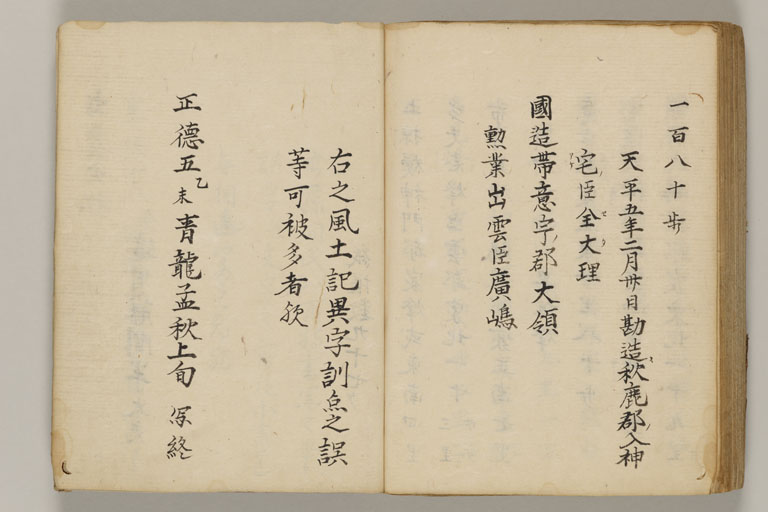 一百八十歩
天平五年二月卅日勘造秋鹿郡人神
宅臣全大理
國造帯意宇郡大領
勲業出雲臣廣嶋
右之風土記異字訓点之誤
等可被多者歟
正德五乙未青龍孟秋上旬 写終